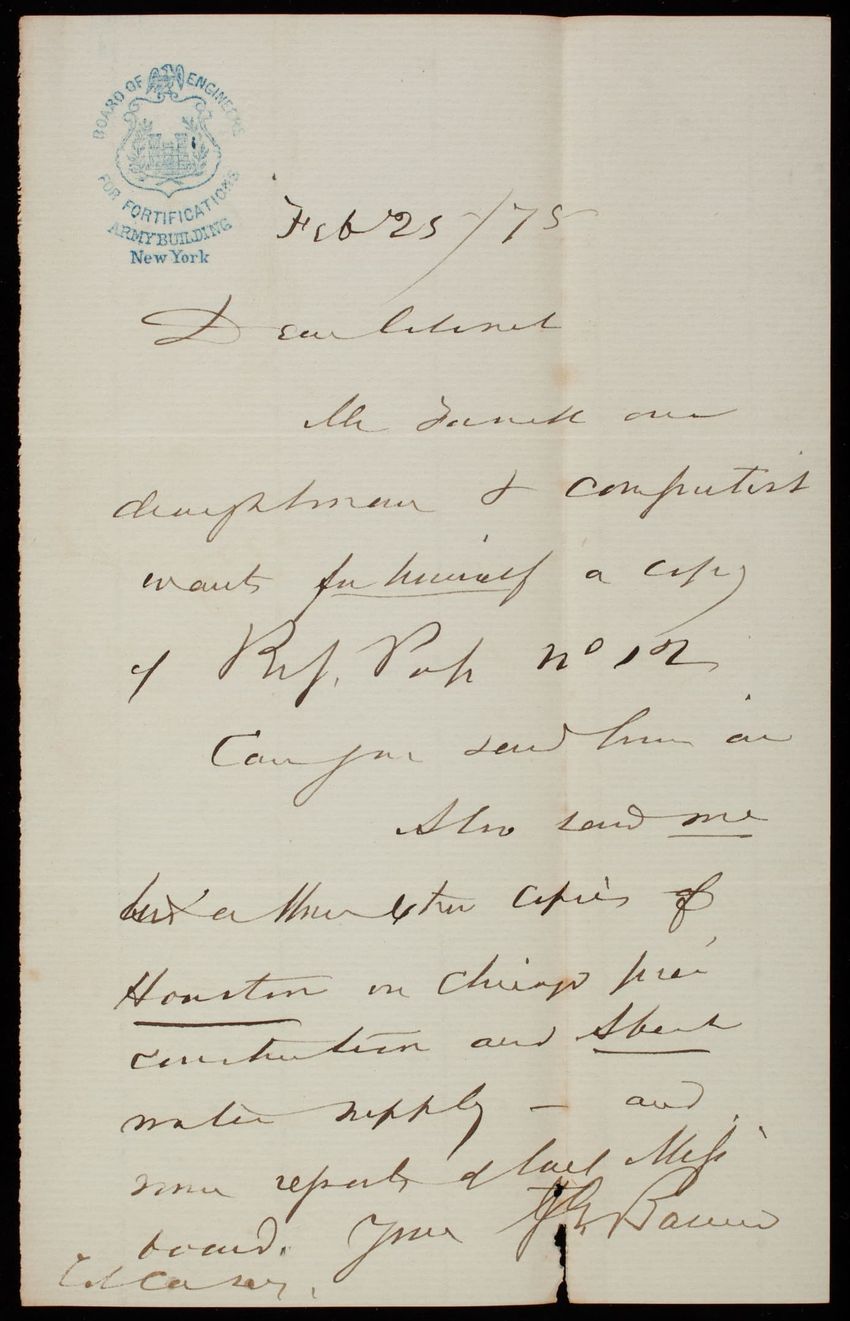 BOARD OF ENGINEERS
FOR FORTIFICATIONS
ARMY BUILDING
New York
Feb 25/75
Dear Colonel
Mr our
draughtman & computist
wants for himself a copy
of Prof. Pap No 12
Can you send him one
Also send me
a three other copies of
Houston on Chicago pier
construction and
water supply — and
some reports of last Miss
board. Yours J G Barnard
Col Casey.